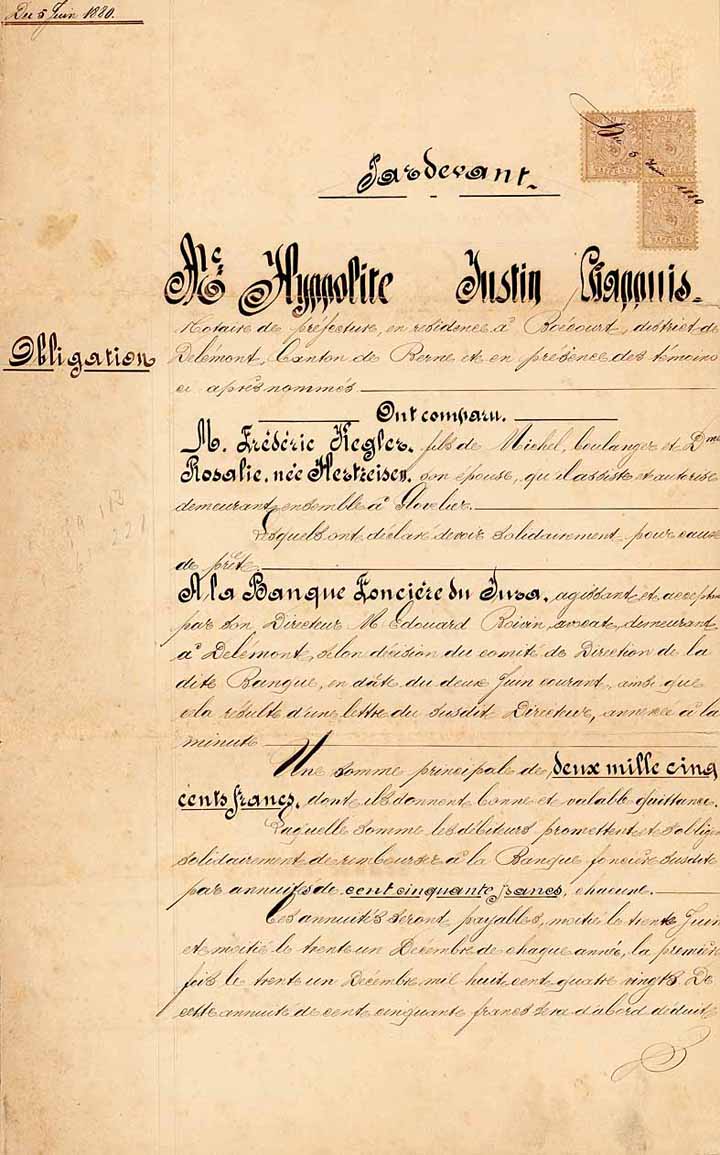 Du 5 Juin 1880.
Pardevant.
Me Hyppolite Justin Chappuis.
Notaire de préfecture, en résidence à Boécourt, district de
Obligation
Delémont, Canton de Berne et en présence des témoins
ci après nommés
Ont comparu.
M. Frédéric Kegler, fils de Michel, boulanger et Dme
Rosalie, née Hertzeisen, son épouse, qu'il assiste et autorise
demeurant ensemble à Glovelier.
Lesquels ont déclaré devoir solidairement pour cause
de prêt
A la Banque Foncière du Jura, agissant et accept
par son Directeur M. Edouard Boivin, avocat, demeurant
à Delémont, selon décision du comité de Direction de la
dite Banque, en date du deux Juin courant, ainsi que
cela résulte d'une lettre du susdit Directeur, annexée à la
minute
Une somme principale de deux mille cinq
cents francs, dont ils donnent bonne et valable quittance.
Laquelle somme les débiteurs promettent et s'oblig
solidairement de rembourser à la Banque foncière susdite
par annuités de cent cinquante francs, chacune.
Ces annuités seront payables, moitié le trente Juin
et moitié le trente un Décembre de chaque année, la première
fois le trente un Décembre mil huit cent quatre vingts. De
cette annuité de cent cinquante francs sera d'abord déduit